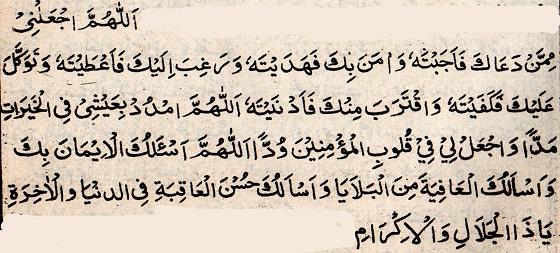 اَللّٰهُمَّ اجْعَلْنِیْ
مِمَّنْ دَعَاكَ فَاَجَبْتَهٗ وَاٰمَنَ بِكَ فَهَدَيْتَهٗ وَرَغِبَ اِلَيْكَ فَاَعْطَيْتَهٗ وَتَوَكَّلَ
عَلَيْكَ فَكَفَيْتَهٗ وَاقْتَرَبَ مِنْكَ فَاَدْنَيْتَهٗ اَللّٰهُمَّ امْدُدْ بِعَيْشِیْ فِی الْخَيْرَاتِ
مَدًّا وَاجْعَلْ لِيْ فِيْ قُلُوْبِ الْمُؤْمِنِيْنَ وُدًّا اَللّٰهُمَّ اَسْئَلُكَ الْاِيْمَانَ بِكَ
وَاَسْاَلُكَ الْعَافِيَةَ مِنَ الْبَلَايَا وَاَسْاَلُكَ حُسْنَ الْعَاقِبَةِ فِی الدُّنْيَا وَالْاٰخِرَةِ
يَاذَا الْجَلَالِ وَالْاِكْرَامِ